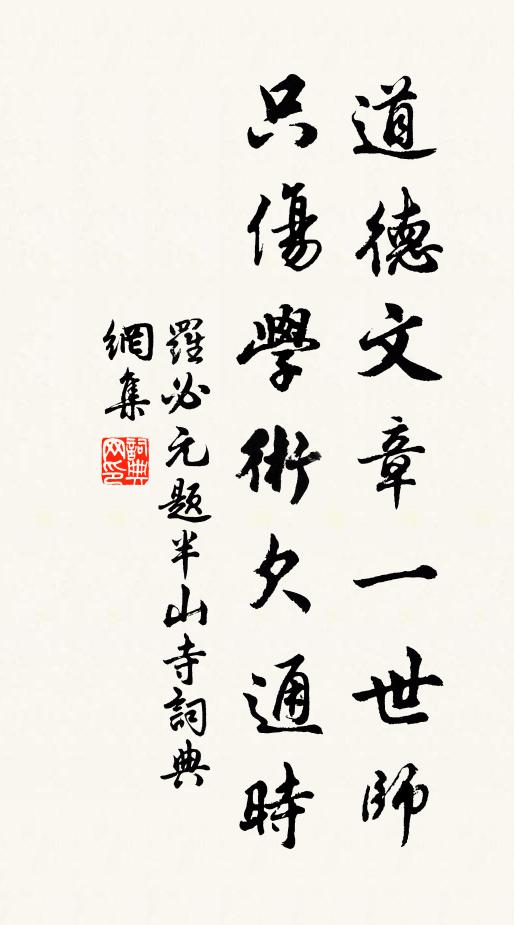 道德文章一世師
只傷學術欠通時
羅必元題半山寺詞典
網集
詞典
網印